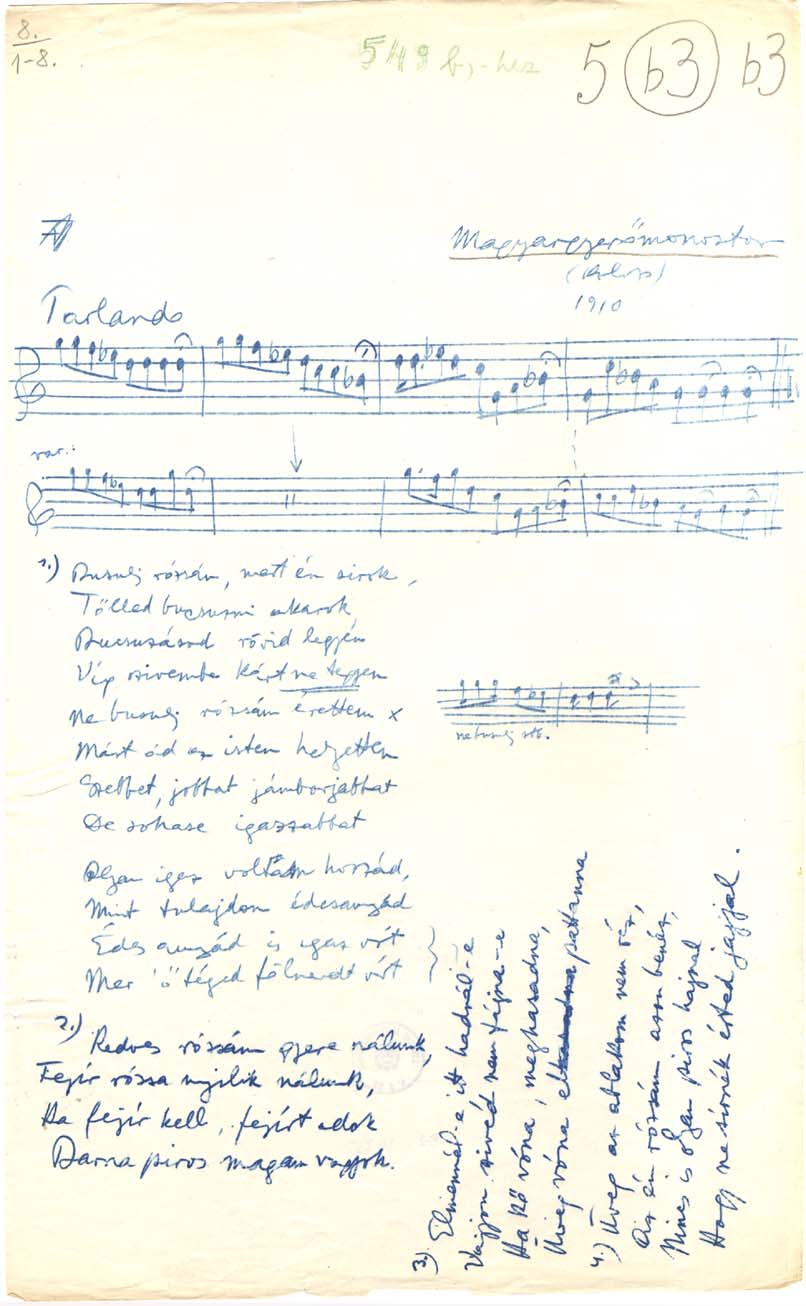 8.
1-8.
549 b,-hez
5 b3 b3
Magyargyerőmonostor
(Kolozs)
1910
Parlando
var.:
1.) Busulj rózsám, mert én sirok,
Tőlled bucsuzni akarok
Bucsuzásod rövid legyén
Víg szivembe kárt ne tegyen
Ne busulj rózsám érettem x
Mást ád az isten helyettem
Szebbet, jobbat jámborjabbat
De sohase igazzabbat
Olyan igaz voltam hozzád,
Mint tulajdon édesanyád
Édes anyád is igaz vót
Mer ő téged fölnevelt vót
ne busulj stb.
2.) Kedves rózsám gyere nálunk,
Fejír rózsa nyilik nálunk,
Ha fejír kell, fejírt adok
Barna piros magam vagyok.
3.) Elmennél-e itt hadnál-e
Vajjon szivéd nem fájna-e
Ha kő vóna, meghasadna,
Üveg vóna elpattanna
4.) Üveg az ablakom nem réz,
Az én rózsám azon benéz,
Nincs is olyan piros hajnal
Hogy ne sirnék érted jajjal.